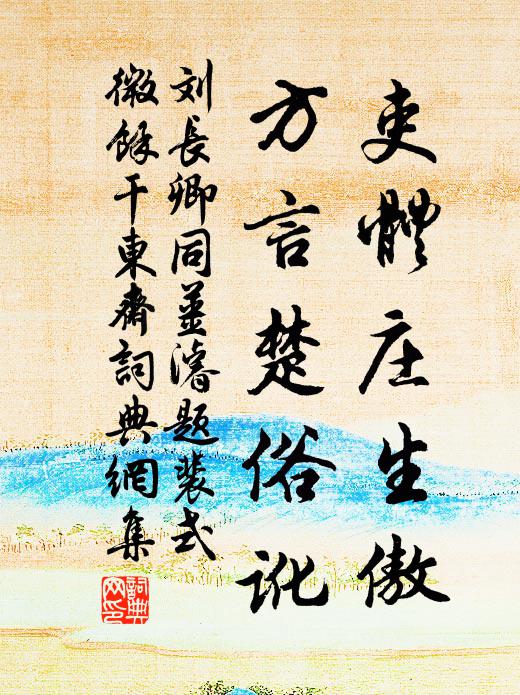 吏體庄生傲
方言楚俗訛
刘長卿同姜濬題裴式
微餘干東齋詞典網集
詞典网印